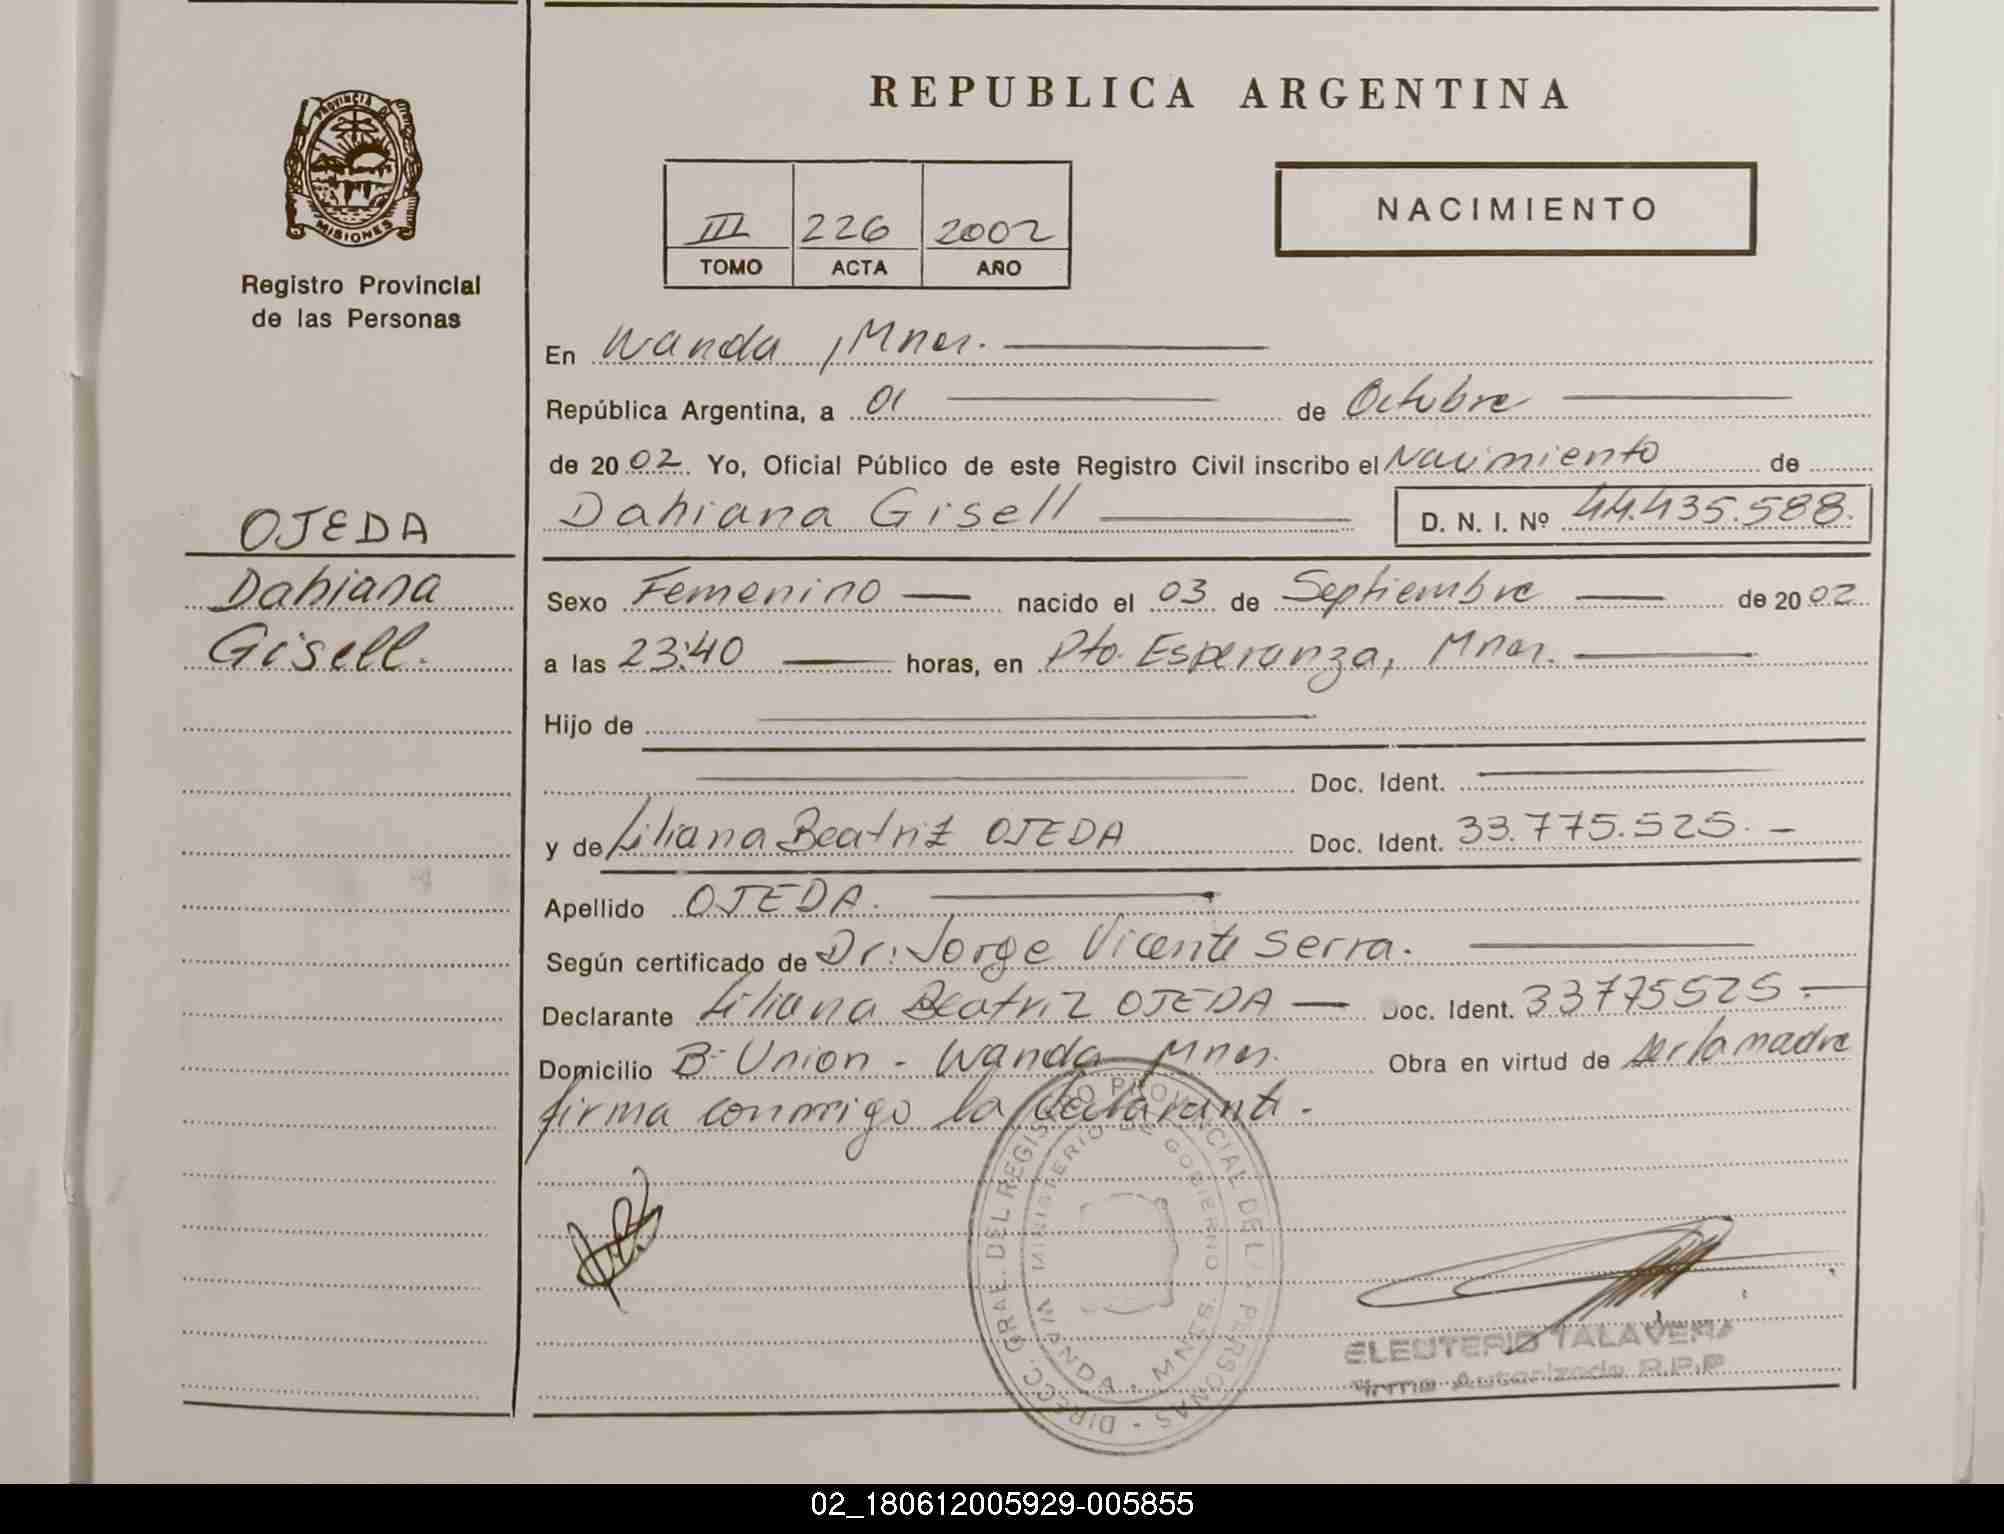 REPUBLICA ARGENTINA
PROVINCIA DE
MISIONES
Registro Provincial
de las Personas
OJEDA
Dahiana
Gisell.
III 226 2002
TOMO ACTA AÑO
NACIMIENTO
En Wanda, Mnes.
República Argentina, a 01 de Octubre
de 2002. Yo, Oficial Público de este Registro Civil inscribo el Nacimiento de
Dahiana Gisell D. N. I. Nº 44.435.588.
Sexo Femenino nacido el 03 de Septiembre de 2002
a las 23:40 horas, en Pto. Esperanza, Mnes.
Hijo de
Doc. Ident.
y de Liliana Beatriz OJEDA Doc. Ident. 33.775.525.-
Apellido OJEDA.
Según certificado de Dr: Jorge Vicente Serra.
Declarante Liliana Beatriz OJEDA Doc. Ident. 33775525.-
Domicilio Bº Union - Wanda Mnes. Obra en virtud de ser la madre
firma conmigo la declarante.
DIRECC. GRAL. DEL REGISTRO PROVINCIAL DE L. PERSONAS
MINISTERIO DE GOBIERNO
WANDA - MNES.
ELEUTERIO TALAVERA
Firma Autorizada R.P.P
02_180612005929-005855